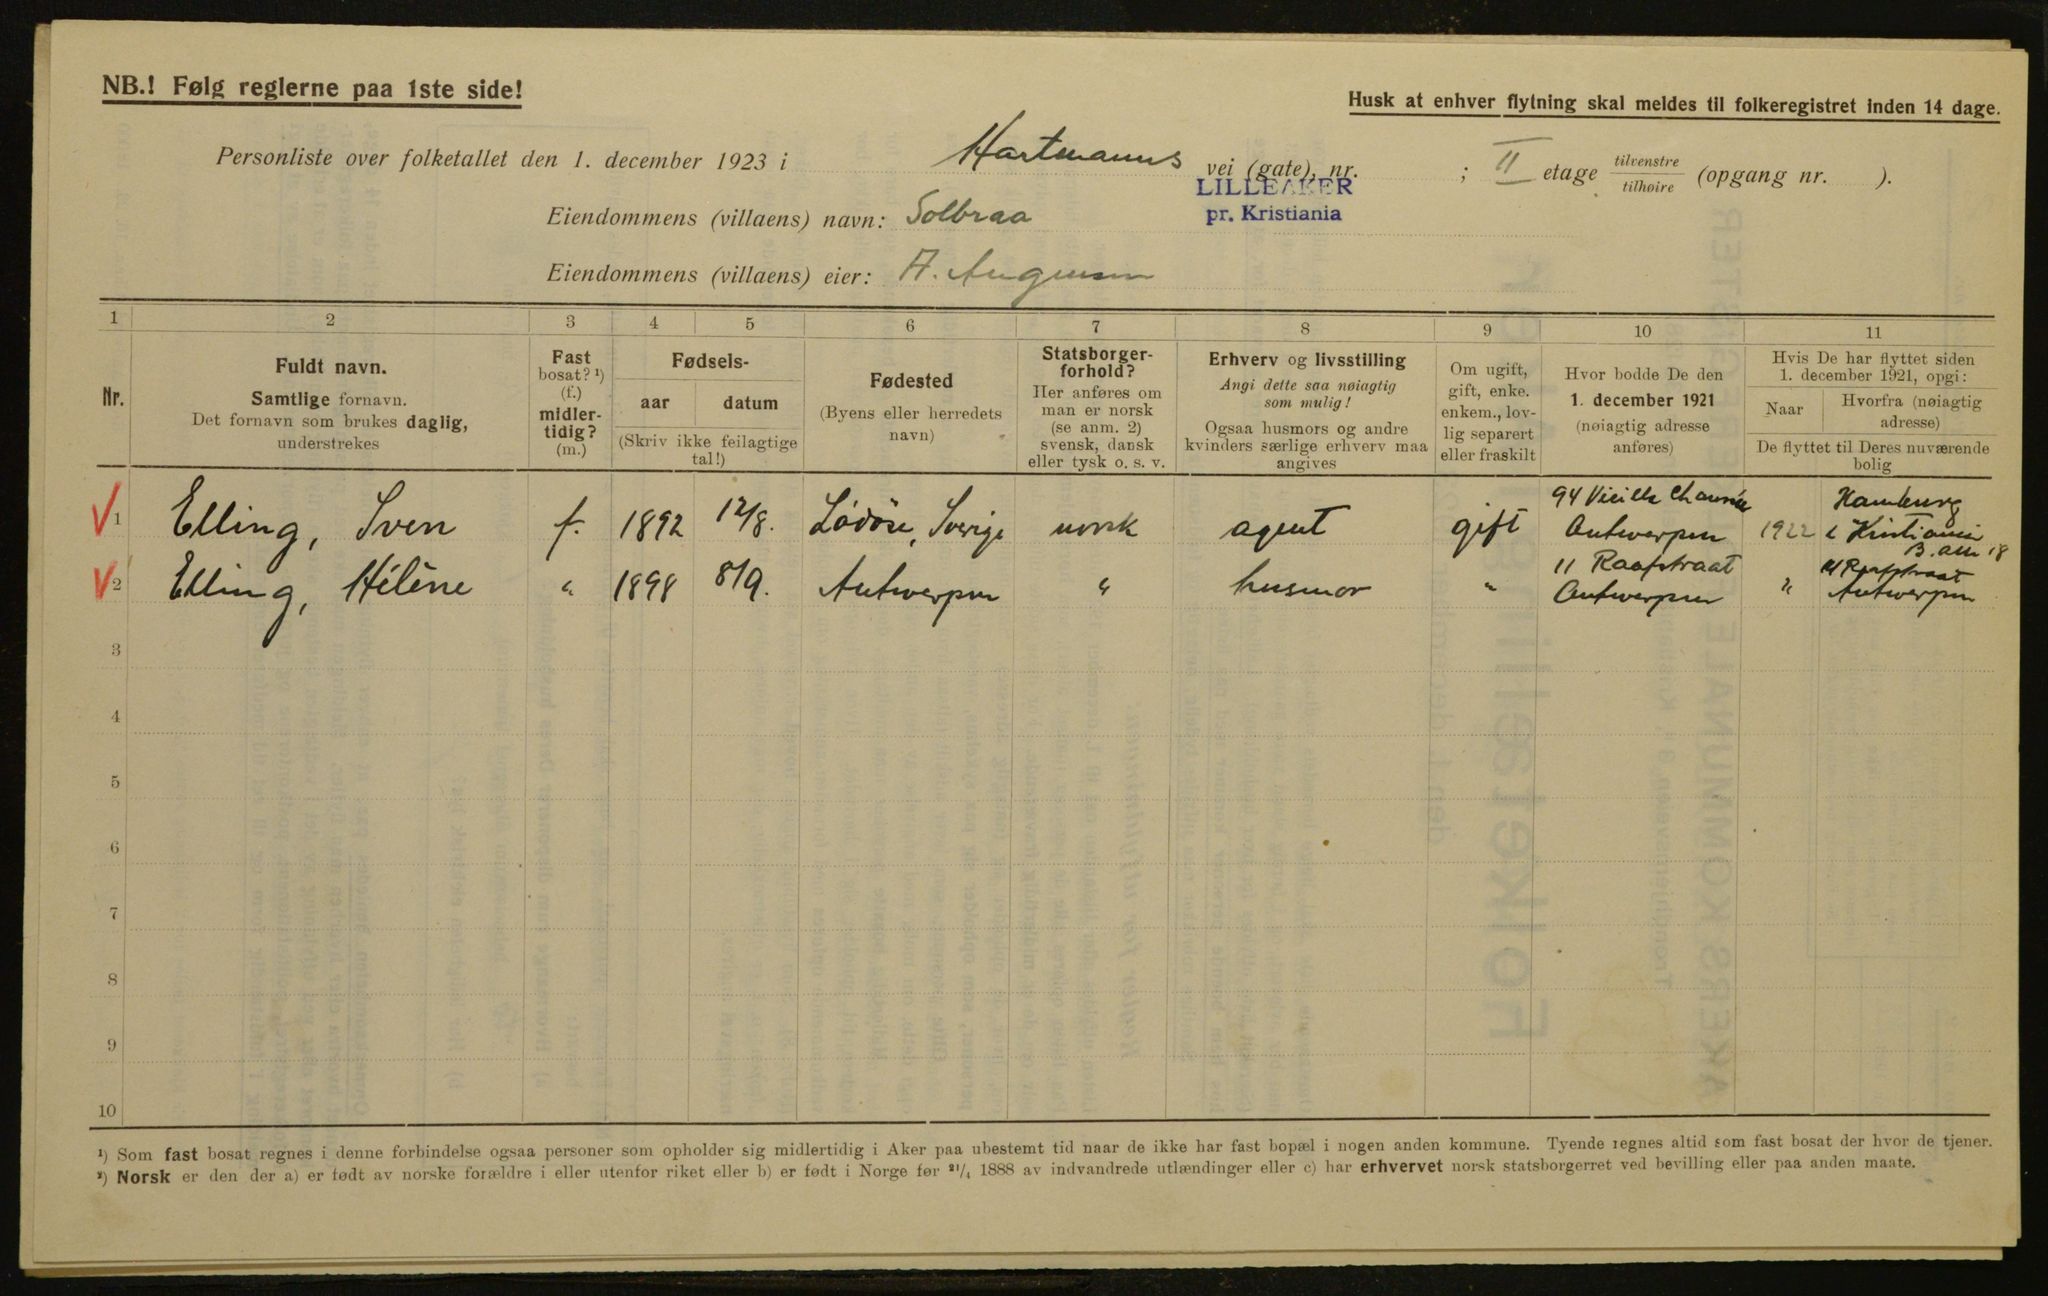 NB.! Følg reglerne paa 1ste side!
Husk at enhver flytning skal meldes til folkeregistret inden 14 dage.
Personliste over folketallet den 1. december 1923 i Hartmanns vei (gate), nr. ; II etage tilvenstre tilhøire (opgang nr. ).
LILLEAKER
pr. Kristiania
Eiendommens (villaens) navn: Solbraa
Eiendommens (villaens) eier: A.
1 2 3 4 5 6 7 8 9 10 11
Nr.
Fuldt navn.
Samtlige fornavn.
Det fornavn som brukes daglig,
understrekes
Fast
bosat? ¹)
(f.)
midler-
tidig?
(m.)
Fødsels-
aar datum
(Skriv ikke feilagtige
tal!)
Fødested
(Byens eller herredets
navn)
Statsborger-
forhold?
Her anføres om
man er norsk
(se anm. 2)
svensk, dansk
eller tysk o. s. v.
Erhverv og livsstilling
Angi dette saa nøiagtig
som mulig!
Ogsaa husmors og andre
kvinders særlige erhverv maa
angives
Om ugift,
gift, enke.
enkem., lov-
lig separert
eller fraskilt
Hvor bodde De den
1. december 1921
(nøiagtig adresse
anføres)
Hvis De har flyttet siden
1. december 1921, opgi:
Naar
Hvorfra (nøiagtig
adresse)
De flyttet til Deres nuværende
bolig
94 Vieille Hamburg
1 Elling, Sven f. 1892 12/8. Lödöse, Sverige norsk agent gift Antwerpen 1922 Kristiania
B. alle 18
11 Raafstraat 11 Raafstraat
2 Elling, Hélène " 1898 8/9. Antwerpen " husmor " Antwerpen " Antwerpen
3
4
5
6
7
8
9
10
¹) Som fast bosat regnes i denne forbindelse ogsaa personer som opholder sig midlertidig i Aker paa ubestemt tid naar de ikke har fast bopæl i nogen anden kommune. Tyende regnes altid som fast bosat der hvor de tjener.
²) Norsk er den der a) er født av norske forældre i eller utenfor riket eller b) er født i Norge før ²¹/₄ 1888 av indvandrede utlændinger eller c) har erhvervet norsk statsborgerret ved bevilling eller paa anden maate.